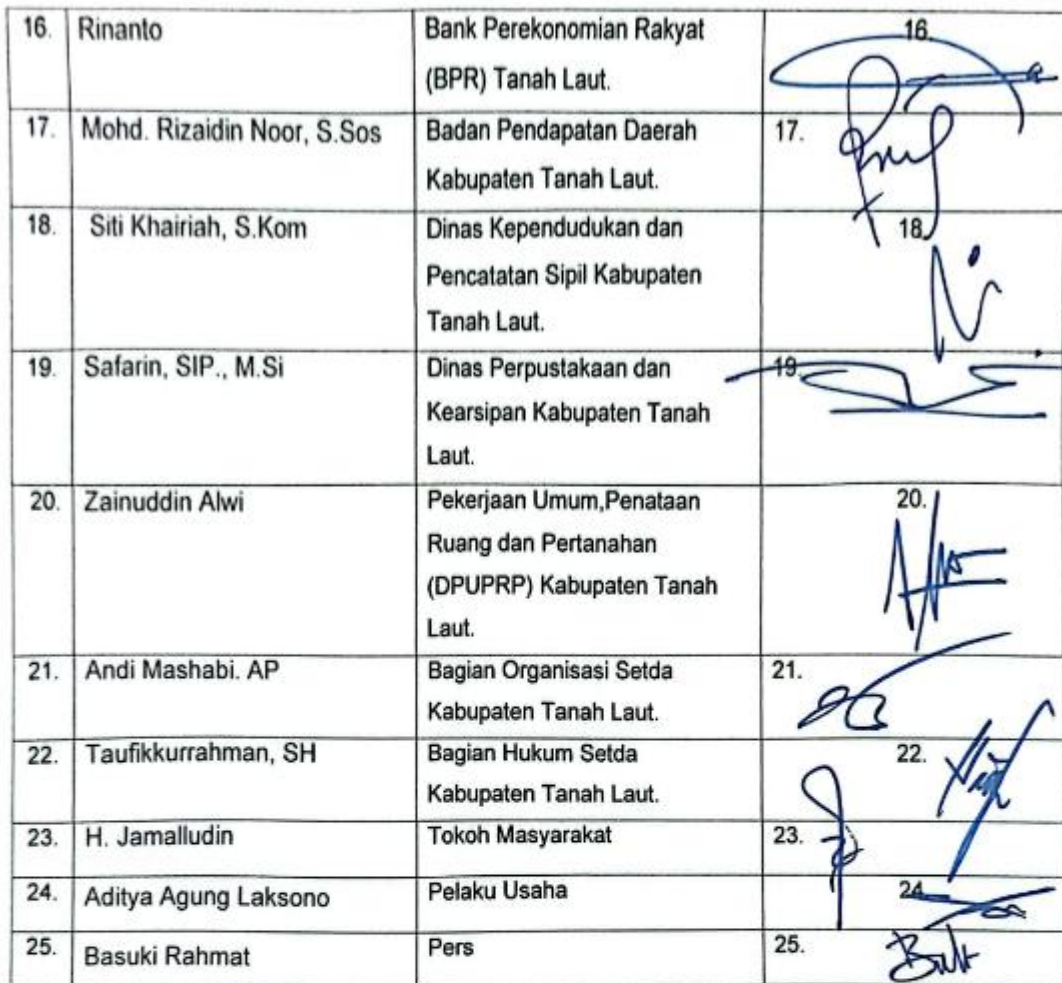 16. Rinanto Bank Perekonomian Rakyat 16.
(BPR) Tanah Laut.
17. Mohd. Rizaidin Noor, S.Sos Badan Pendapatan Daerah 17.
Kabupaten Tanah Laut.
18. Siti Khairiah, S.Kom Dinas Kependudukan dan 18.
Pencatatan Sipil Kabupaten
Tanah Laut.
19. Safarin, SIP., M.Si Dinas Perpustakaan dan 19.
Kearsipan Kabupaten Tanah
Laut.
20. Zainuddin Alwi Pekerjaan Umum,Penataan 20.
Ruang dan Pertanahan
(DPUPRP) Kabupaten Tanah
Laut.
21. Andi Mashabi. AP Bagian Organisasi Setda 21.
Kabupaten Tanah Laut.
22. Taufikkurrahman, SH Bagian Hukum Setda 22.
Kabupaten Tanah Laut.
23. H. Jamalludin Tokoh Masyarakat 23.
24. Aditya Agung Laksono Pelaku Usaha 24.
25. Basuki Rahmat Pers 25.